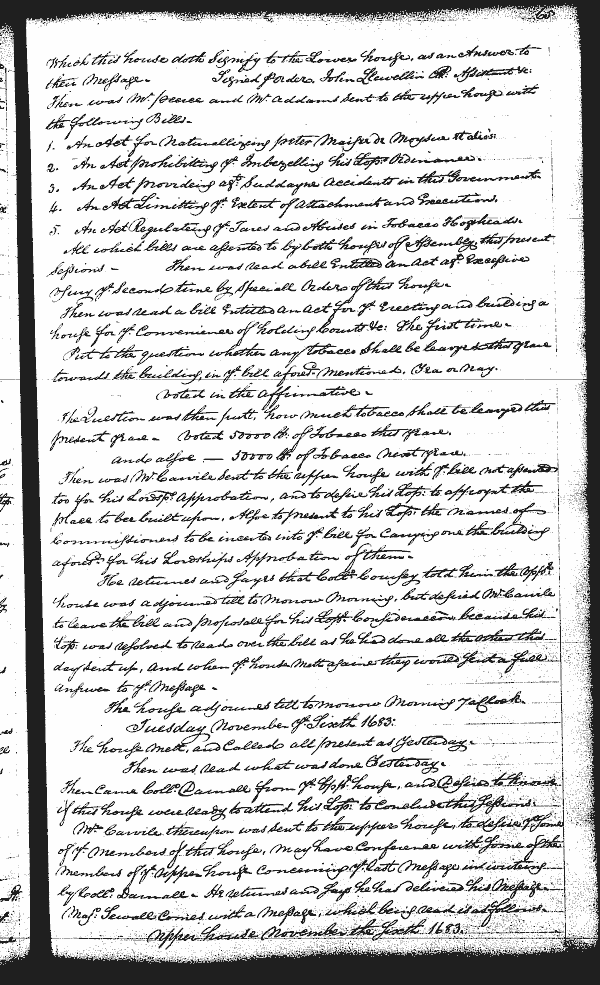 65
Which this house doth Signify to the Lower house, as an Answer to
their Message. Signed p order, John Llewellin Cl. Assistant &c:
Then was Mr. Peerce and Mr. Addams sent to the upper house with
the following Bills.
1. An Act for Naturallizeing peter
2. An Act prohibitting ye. Imbezelling his Lopps Ordinance.
3. An Act provideing agt. Suddayne Accidents in this Government
4. An Act Limitting ye. Extent of Attachment and Executions.
5. An Act Regulating ye. Tares and Abuses in Tobacco Hogsheads.
All which bills are assented to by both houses of Assembly this present
Sessions - Then was read a bill Entitled an Act agt. Excessive
Usury ye. Second time by Speciall Order of this house.
Then was read a bill Entitled an Act for ye. Erecting and building a
house for ye. Convenience of holding Courts &c: The first time.
Put to the question whether any tobacco Shall be leavyed this yeare
towards the building, in ye. bill aforesd. Mentioned, Yea or Nay.
Voted in the affirmative.
The Question was then putt, how much tobacco shall be leavyed this
present yeare - Voted 50000 lb. of Tobacco this yeare.
and alsoe — 50000 lb. of Tobacco Next yeare.
Then was Mr. Carvile sent to the upper house with ye. bill not assented
too for his Lordsps. approbation, and to desire his Lopp: to appoynt the
place to bee built upon, Alsoe to present to his Lopp: the names of
Commissioners to be incerted into ye. bill for Carrying one the building
aforesd. for his Lordships Approbation of them.
He returnes and sayes that Collo. Coursey told him the Uppr.
house was adjourned till to Morrow Morning, but desired Mr. Carvile
to leave the bill and proposalls for his Lopps. Consideracon, because his
Lopp: was resolved to read over the bill as he had done all the others this
day sent up, and when ye. house Mett againe they would send a full
answer to ye. Message.
The house adjournes till to Morrow Morning 7 aClock.
Tuesday November ye. Sixth 1683:
The house Mett, and Called all present as Yesterday.
Then was read what was done Yesterday.
Then Came Collo. Darnall from ye. Uppr. house, and Desired to know
if this house were ready to attend his Lopp: to Conclude this Sessions.
Mr. Carvile thereupon was sent to the upper house, to desire yt. Some
of ye. Members of this house, May have Conference with Some of the
Members of ye. Upper house Concerning ye. last Message in writeing
by Collo. Darnall - He returnes and Says he has delivered his Message.
Majr. Sewall Comes with a Message, which being read is as follows.
Upper house November the Sixth 1683.